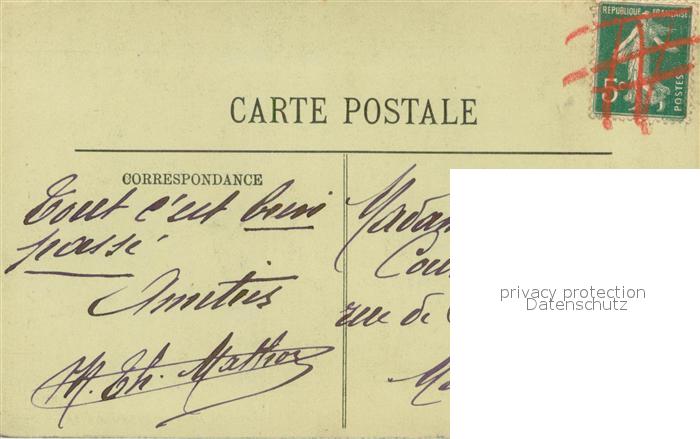 RÉPUBLIQUE FRANÇAISE
5c
POSTES
CARTE POSTALE
CORRESPONDANCE
Tout c'est bien
passé
Amitiés
M. Th. Mathieu
Madam
Cou
rue de
privacy protection
Datenschutz